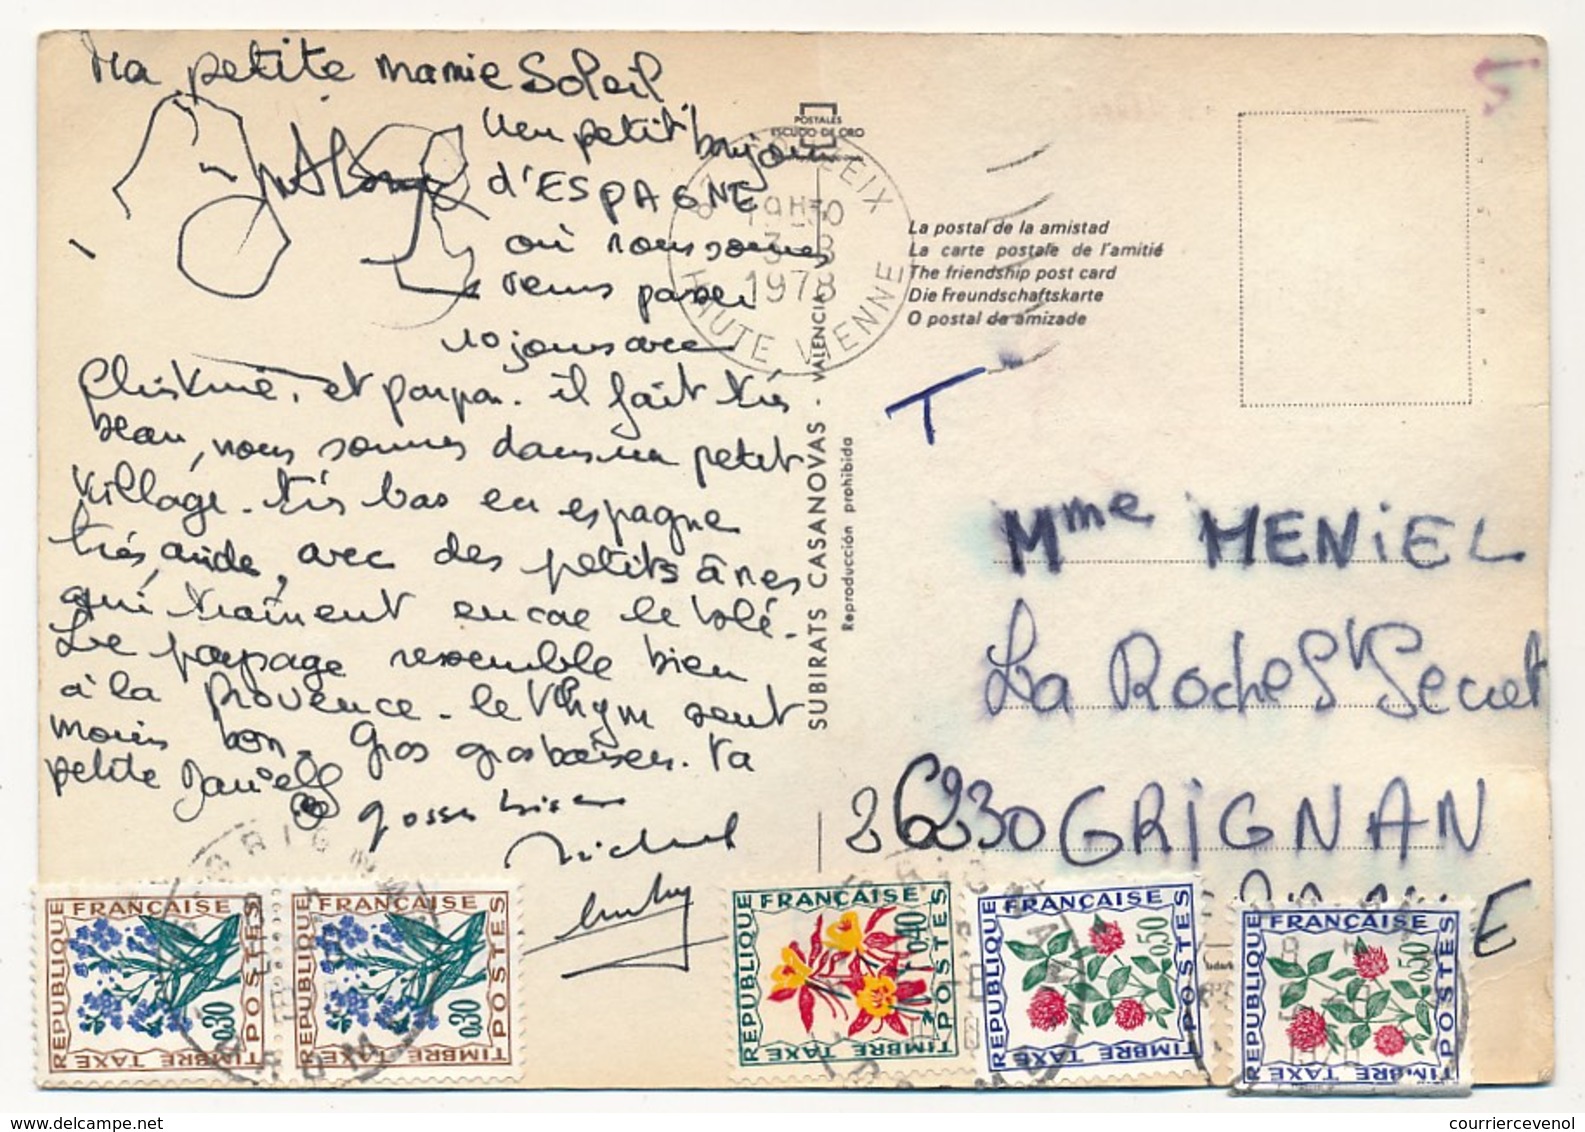 Ma petite mamie Soleil
Un petit bonjour
d'ESPAGNE
où nous sommes
venus passer
10 jours avec
Christine, et papa. il fait très
beau, nous sommes dans un petit
village. très bas en espagne
très aride, avec des petits ânes
qui traînent encore le blé.
Le paysage ressemble bien
à la Provence. le thym sent
moins bon. Gros gros baisers. ta
petite Danielle
grosses bises
Michel
POSTALES
ESCUDO DE ORO
EIX
19H30
3-8
1978
HAUTE VIENNE
La postal de la amistad
La carte postale de l'amitié
The friendship post card
Die Freundschaftskarte
O postal da amizade
SUBIRATS CASANOVAS - VALENCIA
Reproducción prohibida
T
Mme MENIEL
La Roche St Secret
26230 GRIGNAN
DROME
E
REPUBLIQUE FRANÇAISE
POSTES
TIMBRE TAXE
0,30
REPUBLIQUE FRANÇAISE
POSTES
TIMBRE TAXE
0,30
REPUBLIQUE FRANÇAISE
POSTES
TIMBRE TAXE
0,40
REPUBLIQUE FRANÇAISE
POSTES
TIMBRE TAXE
0,50
REPUBLIQUE FRANÇAISE
POSTES
TIMBRE TAXE
0,50
GRIGNAN
DROME
www.delcampe.net
courriercevenol